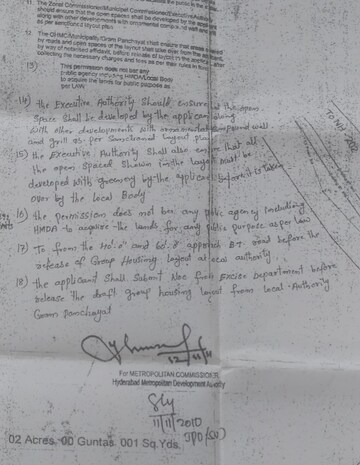 11. The Zonal Commissioner/Municipal Commissioner/Executive Authority
should ensure that the open spaces shall be developed by the
along with other developments with ornamental compound wall and
as per sanctioned layout plan.
12. The GHMC/Municipality/Gram Panchayat shall ensure that
by roads and open spaces of the layout
by way of Notarised affidavit, before release of layout to the
collecting the necessary charges and fees as per their rules in
13) This permission does not bar any
public agency including HMDA/Local Body
to acquire the lands for public purpose as
per LAW.
14) the Executive Authority should ensure the open
Space shall be developed by the applicant along
with other developments with ornamental compound wall
and grill as per sanctioned layout plan.
15) the Executive Authority shall also ensure that all
the open spaces shown in the layout must be
developed with greenery by the applicant before it is taken
over by the local Body
16) the permission does not bar any public agency including
HMDA to acquire the lands for any public purpose as per law
17) To form the 40'.0" and 60'.0" approach B.T. road before the
release of Group Housing layout at
authority.
18) the applicant shall submit Noc from Excise Department before
release the draft group housing layout from local Authority
Gram Panchayat
TO NH
12/11/10
For METROPOLITAN COMMISSIONER
Hyderabad Metropolitan Development Authority
Sly
11/11/2010
JPO
02 Acres, 00 Guntas. 001 Sq.Yds.